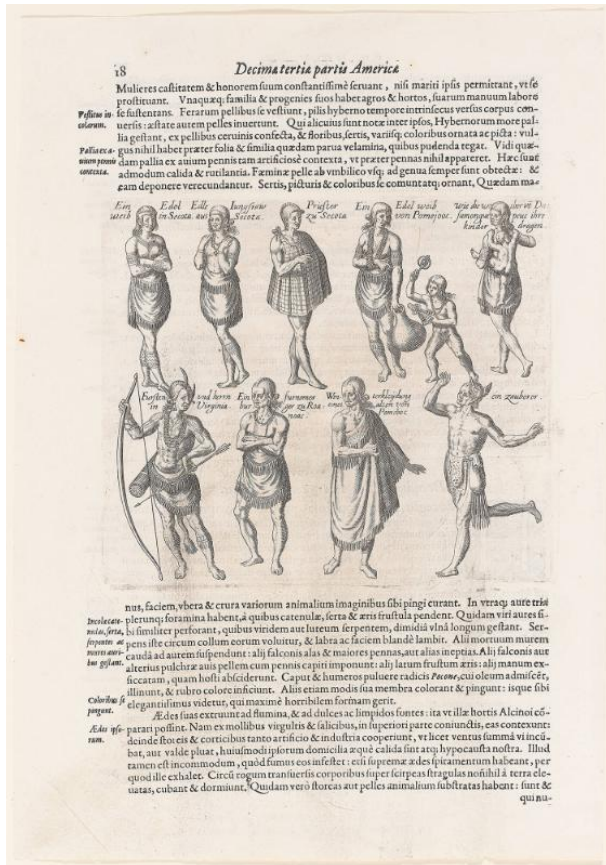 18 Decimæ tertiæ partis Americæ
Mulieres castitatem & honorem suum constantissimè seruant, nisi mariti ipsis permittant, vt se
prostituant. Vnaquæq; familia & progenies suos habet agros & hortos, suarum manuum labore
se sustentans. Ferarum pellibus se vestiunt, pilis hyberno tempore intrinsecus versus corpus con-
Vestitus in-
colarum.
uersis: æstate autem pelles inuertunt. Qui alicuius sunt notæ inter ipsos, Hybernorum more pal-
lia gestant, ex pellibus ceruinis confecta, & floribus, sertis, variisq; coloribus ornata ac picta: vul-
gus nihil habet præter folia & similia quædam parua velamina, quibus pudenda tegat. Vidi quæ-
Pallia ex a-
uium pennis
contexta.
dam pallia ex auium pennis tam artificiosè contexta, vt præter pennas nihil appareret. Hæc sunt
admodum calida & rutilantia. Fæminæ pelle ab vmbilico vsq; ad genua semper sunt obtectæ: &
eam deponere verecundantur. Sertis, picturis & coloribus se comunt atq; ornant, Quædam ma-
Ein Edel weib in Secota.
Eille Iungfraw aus Secota.
Priester zu Secota
Ein Edel weib von Pomejooc.
wie die weiber kinder dragen.
Fursten und heren in Virginia
Ein
ein zauberer.
nus, faciem, vbera & crura variorum animalium imaginibus sibi pingi curant. In vtraq; aure trini
plerunq; foramina habent, à quibus catenulæ, serta & æris frustula pendent. Quidam viri aures si-
bi similiter perforant, quibus viridem aut luteum serpentem, dimidiâ vlnâ longum gestant. Ser-
pens iste circum collum eorum voluitur, & labra ac faciem blandè lambit. Alii mortuum murem
caudâ ad autem suspendunt: alij falconis alas & maiores pennas, aut alias ineptias. Alij falconis aut
alterius pulchræ auis pellem cum pennis capiti imponunt: alij latum frustum æris: alij manum ex-
siccatam, quam hosti absciderunt. Caput & humeros puluere radicis Pocone, cui oleum admiscêt,
illinunt, & rubro colore inficiunt. Alius etiam modis sua membra colorant & pingunt: isque sibi
Coloribus se
pingunt.
elegantissimus videtur, qui maximè horribilem formam gerit.
Ædes suas extruunt ad flumina, & ad dulces ac limpidos fontes: ita vt illæ hortis Alcinoi cō-
Ædes ipso-
rum.
parari possint. Nam ex mollibus virgultis & salicibus, in superiori parte coniunctis, eas contexunt:
deinde storeis & corticibus tanto artificio & industria cooperiunt, vt licet ventus summâ vi incū-
bat, aut valde pluat, huiusmodi ipsorum domicilia æquè calida sunt atq; hypocausta nostra. Illud
tamen est incommodum, quòd fumus eos infestet: etsi supremæ ædes spiramentum habeant, per
quod ille exhalet. Circū rogum transuersis corporibus super scirpeas stragulas nonnihil à terra ele-
uatas, cubant & dormiunt. Quidam verò storeas aut pelles animalium substratas habent: sunt &
qui nu-